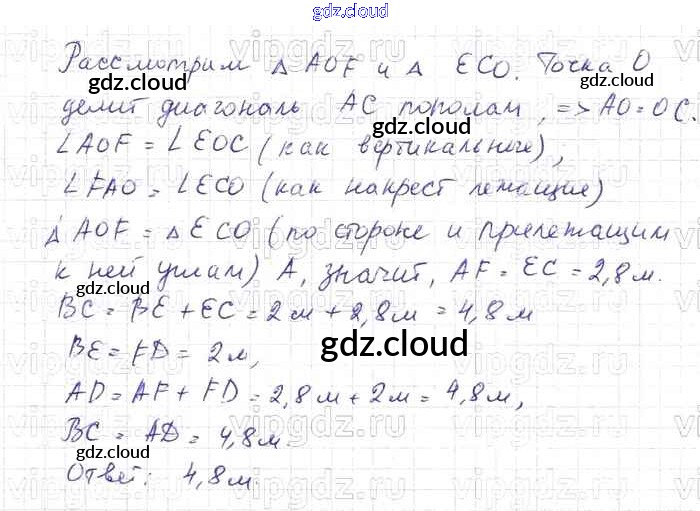 gdz.cloud
Рассмотрим △ AOF и △ ECO. Точка O
gdz.cloud
делит диагональ AC пополам, => AO = OC.
∠AOF = ∠EOC (как вертикальные),
∠FAO = ∠ECO (как накрест лежащие)
△ AOF = △ ECO (по стороне и прилежащим
к ней углам) А, значит, AF = EC = 2,8 м.
BC = BE + EC = 2 м + 2,8 м = 4,8 м
BE = FD = 2 м,
gdz.cloud
AD = AF + FD = 2,8 м + 2 м = 4,8 м,
BC = AD = 4,8 м.
gdz.cloud
Ответ: 4,8 м.